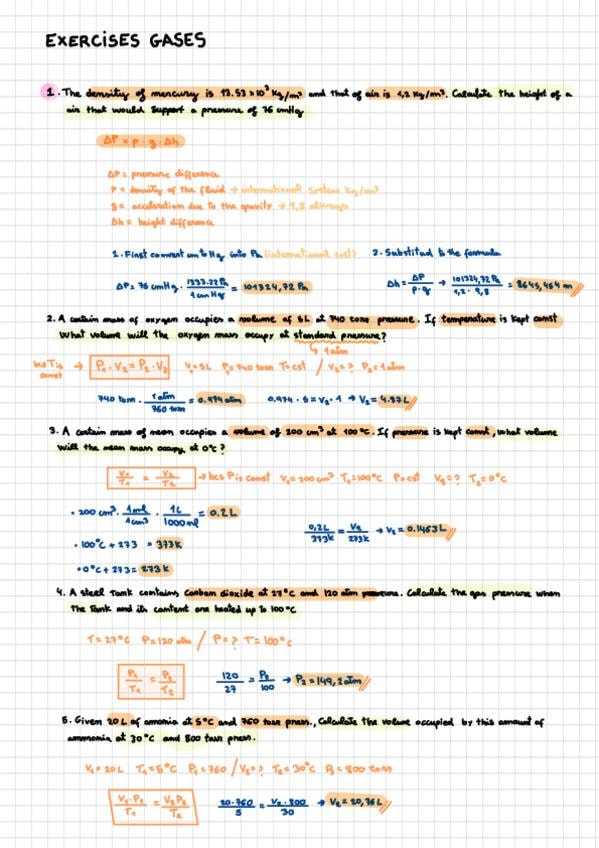 EXERCISES GASES
1. The density of mercury is 13.53 x 10³ kg/m³ and that of air is 1,2 kg/m³. Calculate the height of a
air that would support a pressure of 76 cmHg
ΔP = p · g · Δh
ΔP = pressure difference
P = density of the fluid → international system kg/m³
g = acceleration due to the gravity → 9,8 always
Δh = height difference
1. First convert cmHg into Pa (international syst)
2. Substitud to the formula
ΔP = 76 cmHg · 1333.22 Pa / 1 cm Hg = 101324,72 Pa
Δh = ΔP / p · g → 101324,72 Pa / 1,2 · 9,8 = 8645,454 m
2. A certain mass of oxygen occupies a volume of 5L at 740 torr pressure. If temperature is kept const
What volume will the oxygen mass occupy at standard pressure?
↳ 1 atm
bcs T is const → P₁ · V₂ = P₂ · V₂ V₁ = 5L P₁ = 740 torr T = cst / V₂ = ? P₂ = 1 atm
740 torr · 1 atm / 760 torr = 0.974 atm 0.974 · 5 = V₂ · 1 → V₂ = 4.87L
3. A certain mass of neon occupies a volume of 200 cm³ at 100°C. If pressure is kept const, what volume
will the neon mass occupy at 0°C?
V₁ / T₁ = V₂ / T₂ → bcs P is const V₁ = 200 cm³ T₁ = 100°C P = cst V₂ = ? T₂ = 0°C
· 200 cm³ · 1 ml / 1 cm³ · 1L / 1000 ml = 0.2L
0,2L / 373k = V₂ / 273k → V₂ = 0.1463L
· 100°C + 273 = 373k
· 0°C + 273 = 273k
4. A steel Tank contains Carbon dioxide at 27°C and 120 atm pressure. Calculate the gas pressure when
the Tank and its content are heated up to 100°C
T = 27°C P = 120 atm / P = ? T = 100°C
P₁ / T₁ = P₂ / T₂ 120 / 27 = P₂ / 100 → P₂ = 149,2 atm
5. Given 20 L of amonia at 5°C and 760 torr press., Calculate the volume occupied by this amount of
ammonia at 30°C and 800 torr press.
V₁ = 20L T₁ = 5°C P₁ = 760 / V₂ = ? T₂ = 30°C P₂ = 800 torr
V₁ · P₁ / T₁ = V₂ P₂ / T₂ 20 · 760 / 5 = V₂ · 800 / 30 → V₂ = 20,76L